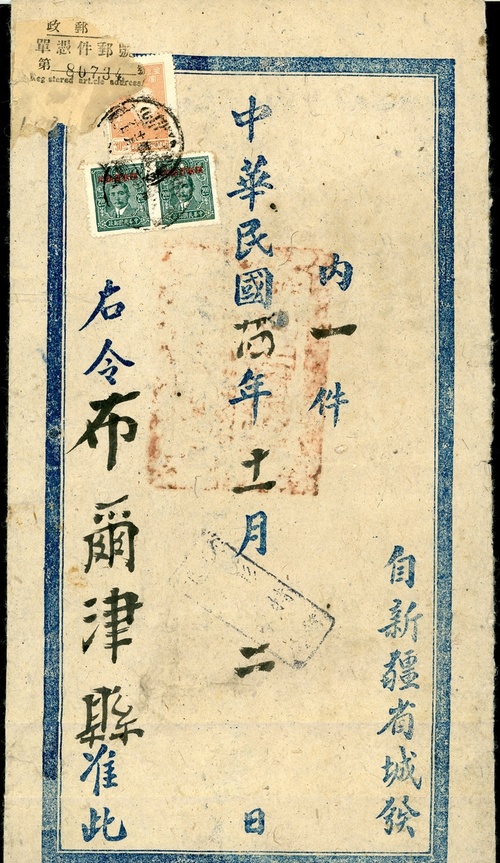 郵政
單憑件郵號掛
第 80734 號
Registered article address
自新疆省城發
內一件
中華民國 年十一月二日
右令布爾津縣准此